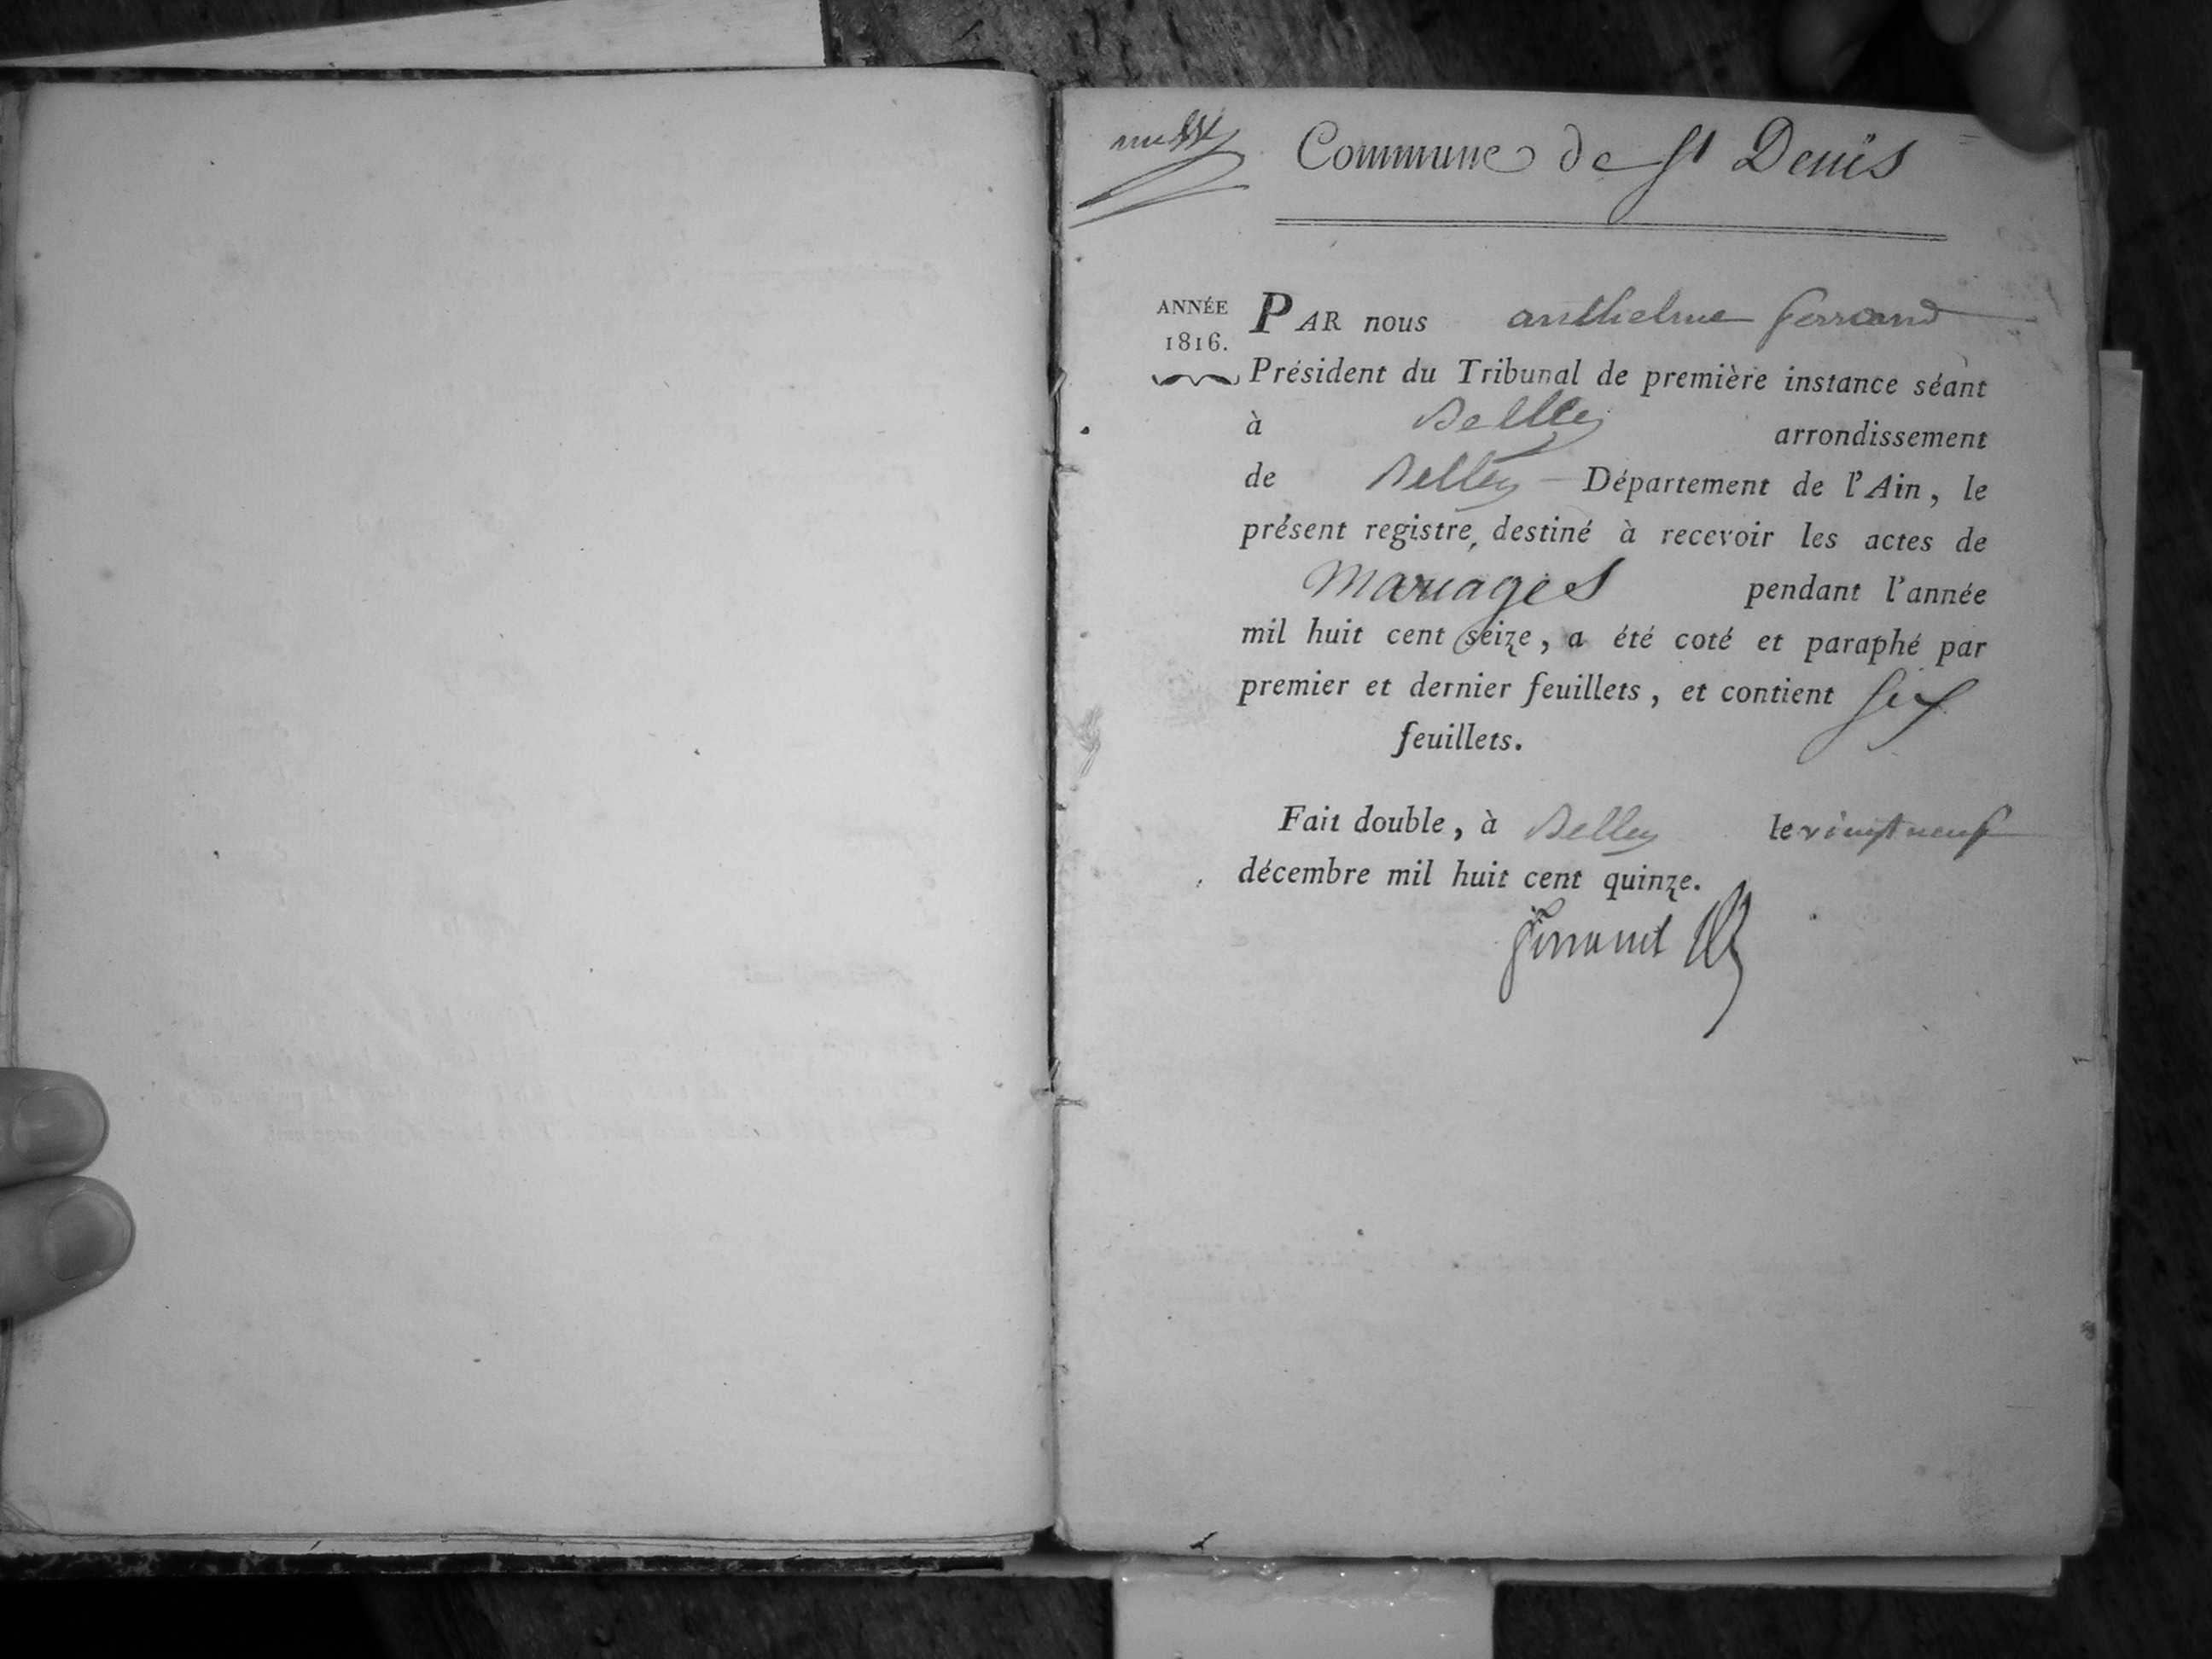 Commune de St Denis
ANNÉE
1816.
PAR nous anthelme ferrand
Président du Tribunal de première instance séant
à Belley arrondissement
de Belley Département de l'Ain, le
présent registre, destiné à recevoir les actes de
mariages pendant l'année
mil huit cent seize, a été coté et paraphé par
premier et dernier feuillets, et contient six
feuillets.
Fait double, à Belley le vingt neuf
décembre mil huit cent quinze.
ferrand